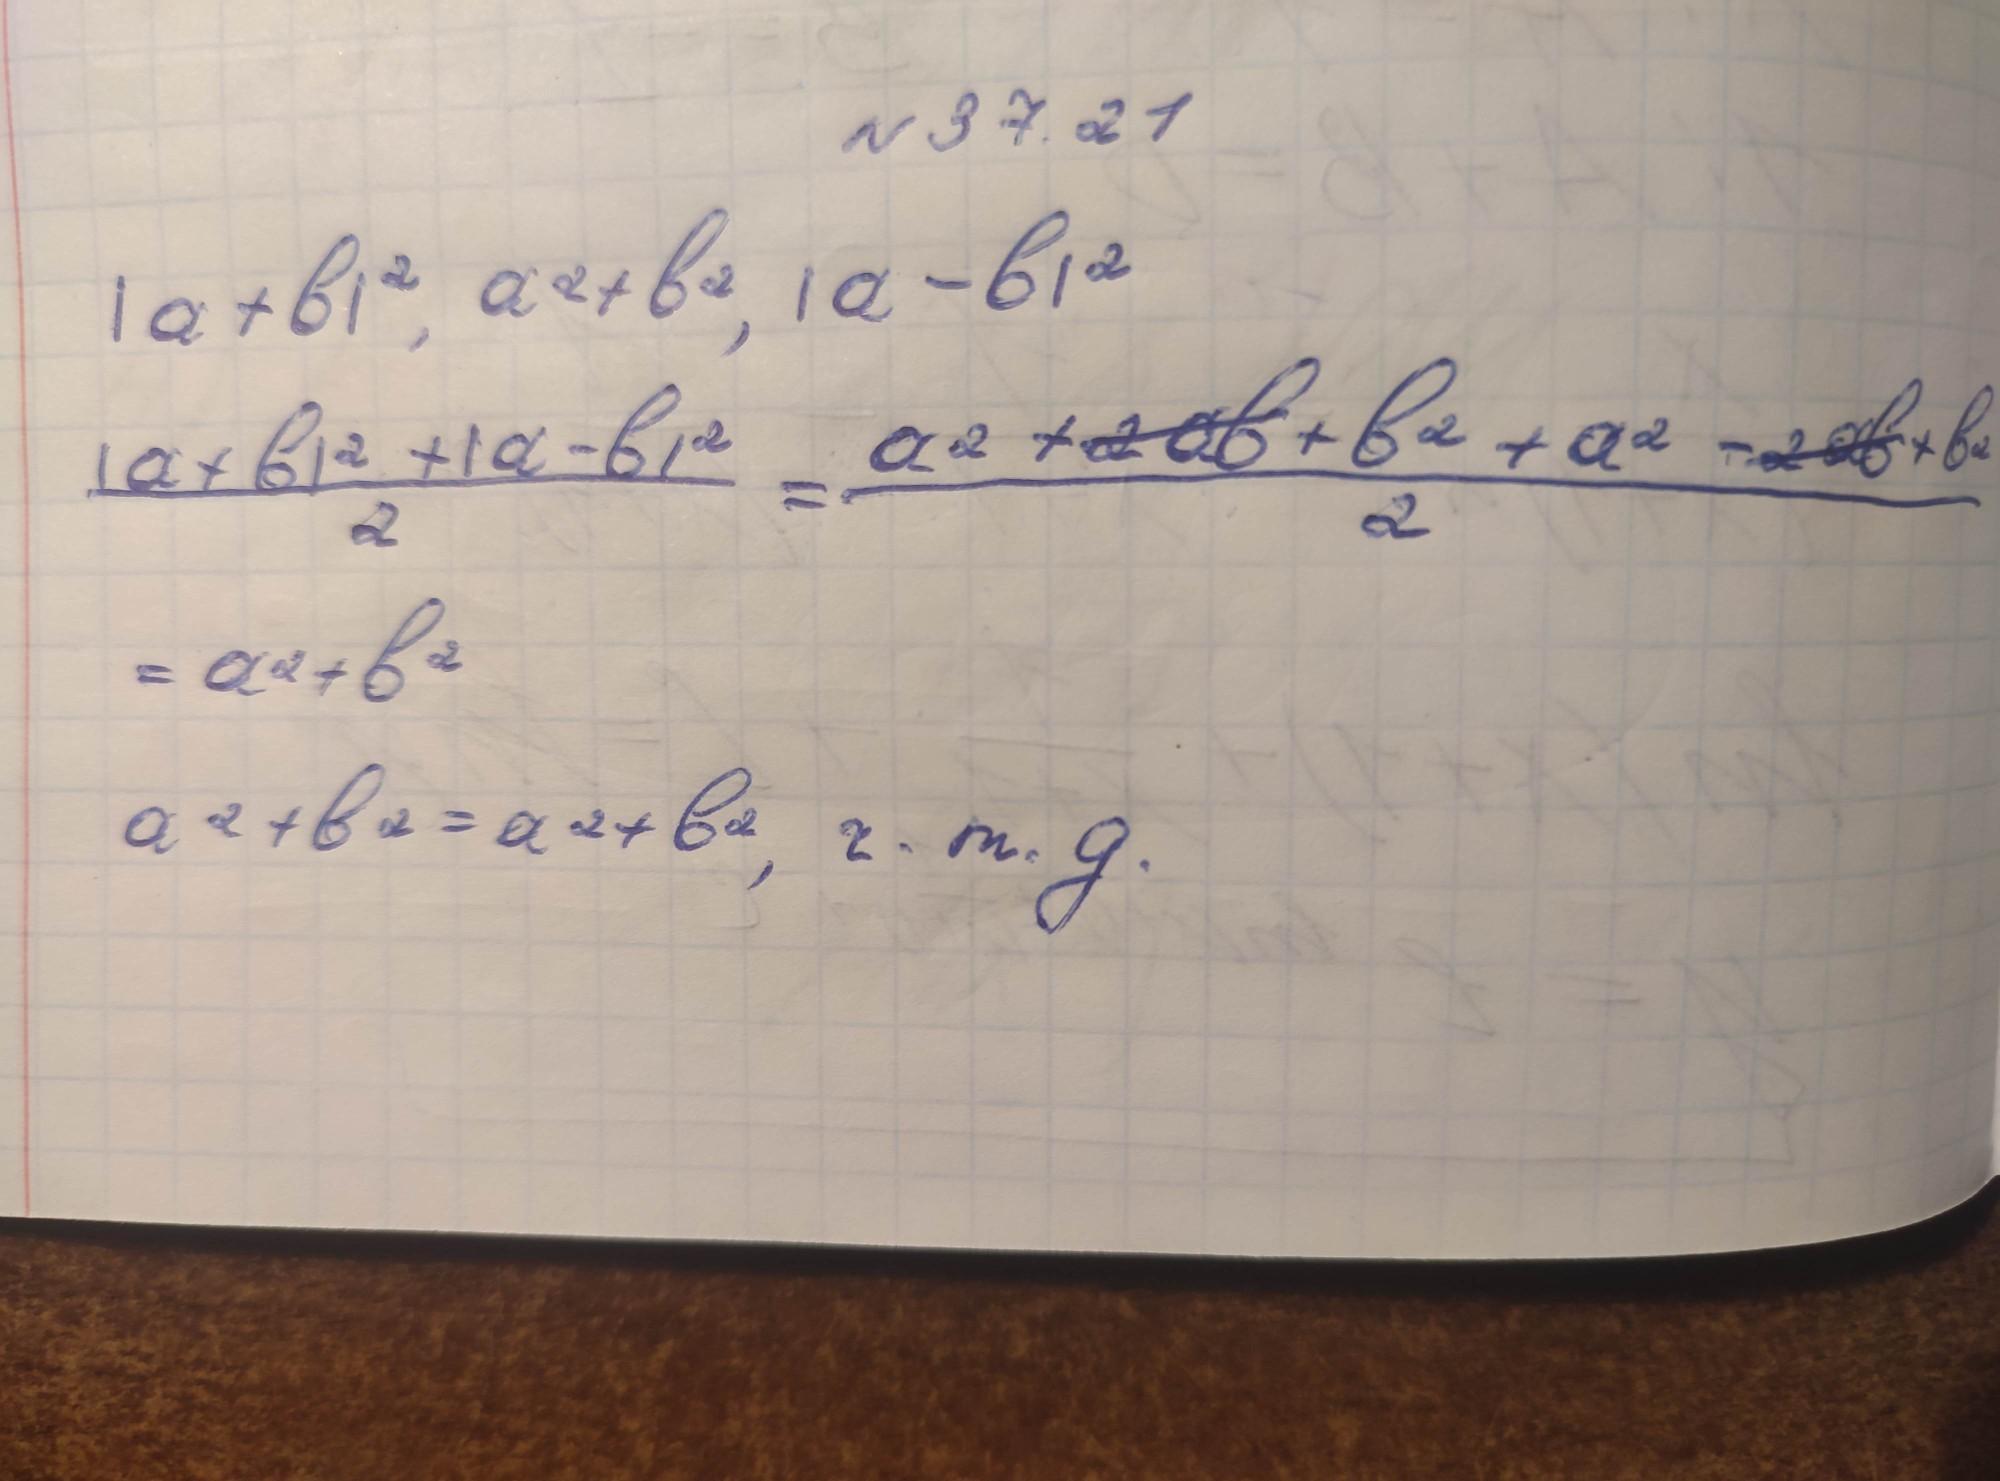 №37.21
|a+b|², a²+b², |a-b|²
|a+b|²+|a-b|² / 2 = a²+2ab+b²+a²-2ab+b² / 2
= a²+b²
a²+b²=a²+b², ч.т.д.